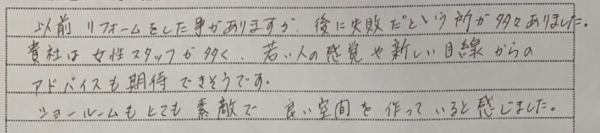 以前 リフォームをした事がありますが、後に失敗だという所が多々ありました。
貴社は女性スタッフが多く、若い人の感覚や新しい目線からの
アドバイスも期待できそうです。
ショールームもとても素敵で 良い空間を作っていると感じました。